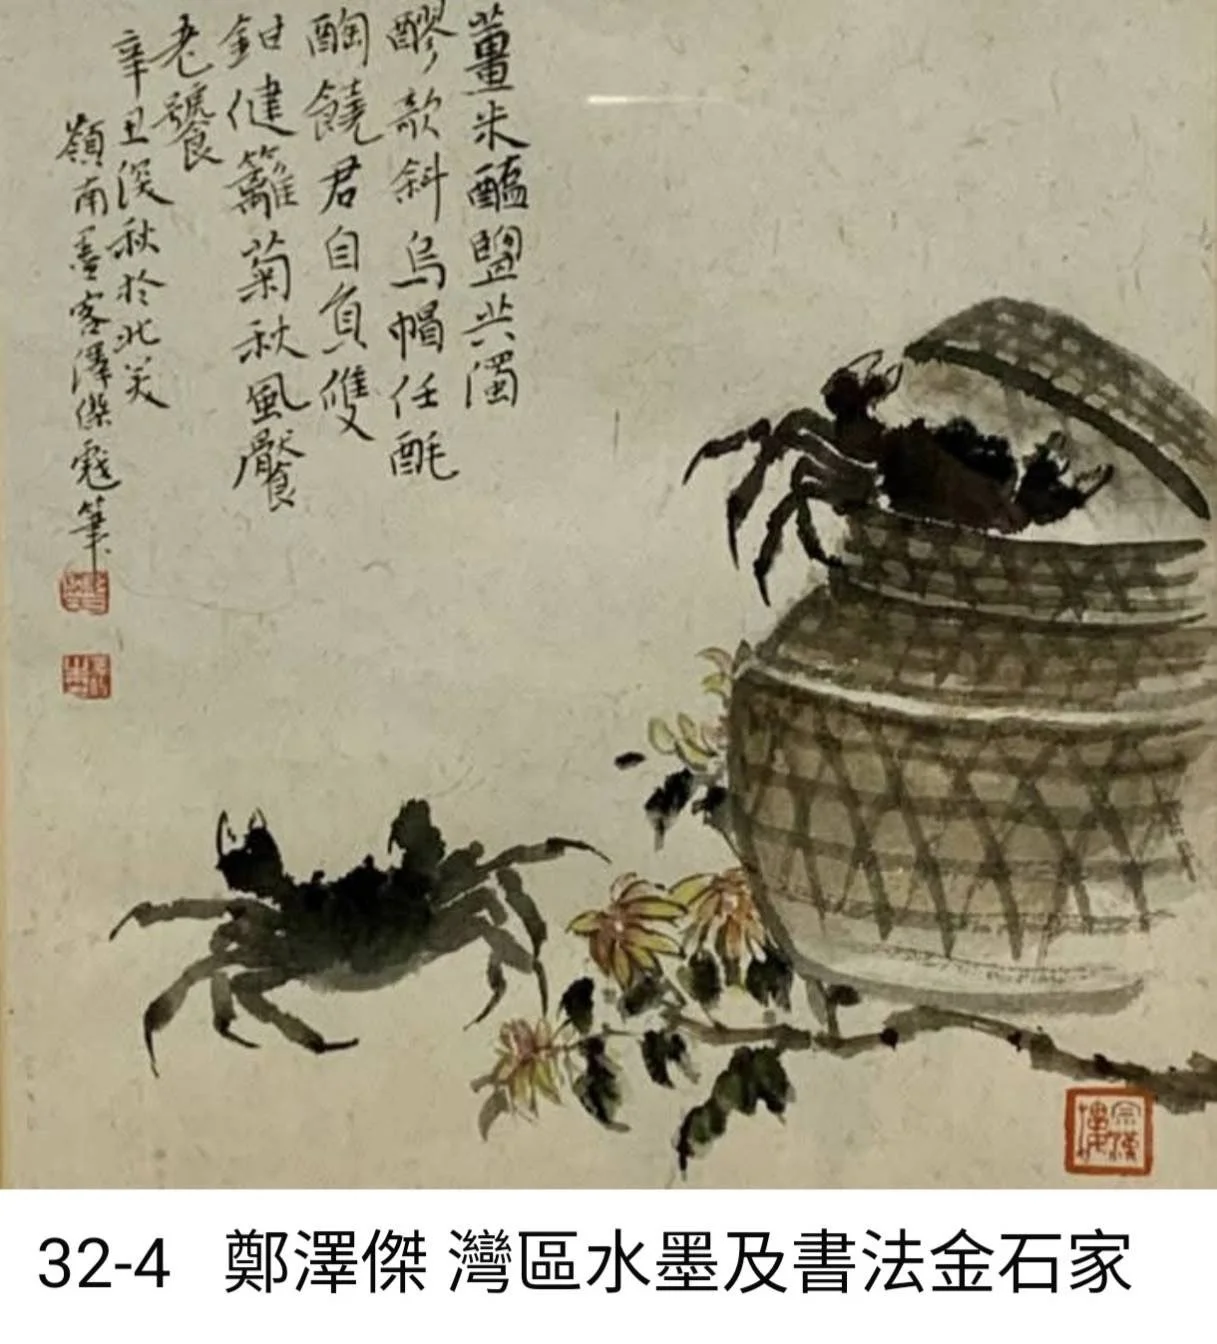 薑米醯鹽共濁
醪欹斜烏帽任酕
醄饒君自負雙
鉗健籬菊秋風饜
老饕
辛丑深秋於北美
嶺南墨客澤傑戲筆
32-4 鄭澤傑 灣區水墨及書法金石家